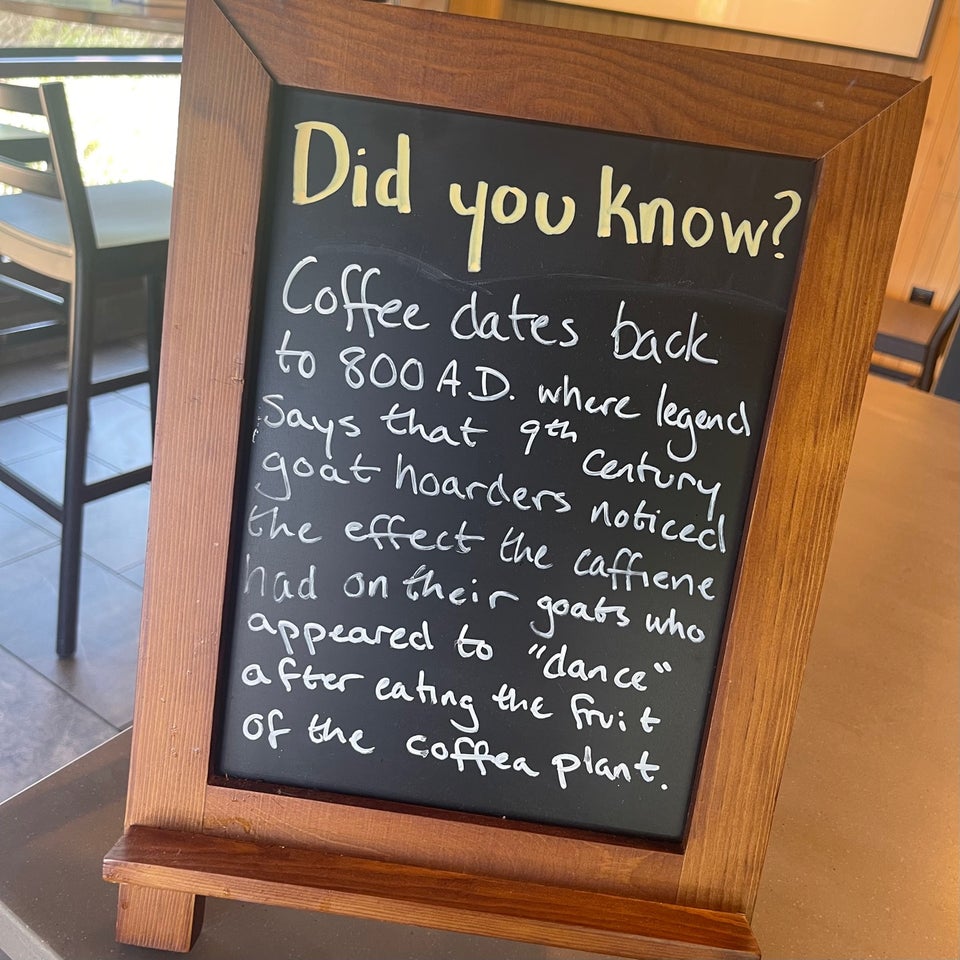 Did you know?
Coffee dates back
to 800 A.D. where legend
says that 9th century
goat hoarders noticed
the effect the caffiene
had on their goats who
appeared to "dance"
after eating the fruit
of the coffea plant.